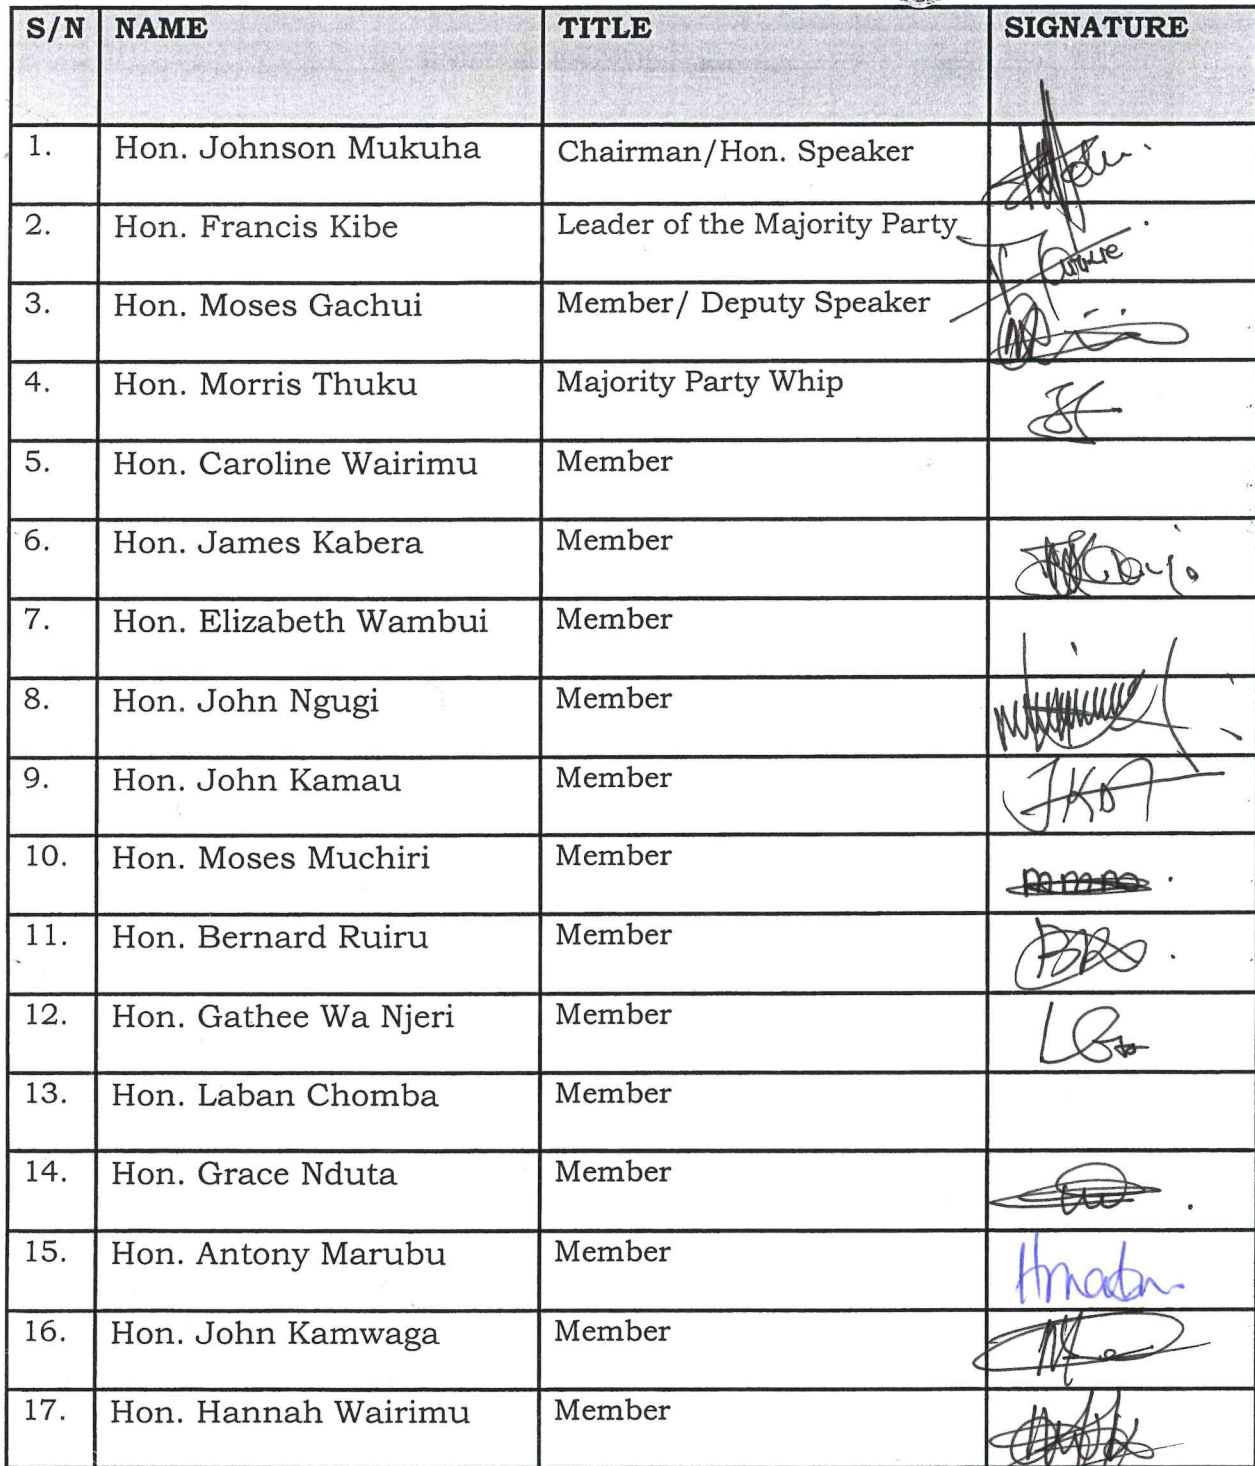 S/N NAME TITLE SIGNATURE
1. Hon. Johnson Mukuha Chairman/Hon. Speaker
2. Hon. Francis Kibe Leader of the Majority Party
3. Hon. Moses Gachui Member/ Deputy Speaker
4. Hon. Morris Thuku Majority Party Whip
5. Hon. Caroline Wairimu Member
6. Hon. James Kabera Member
7. Hon. Elizabeth Wambui Member
8. Hon. John Ngugi Member
9. Hon. John Kamau Member
10. Hon. Moses Muchiri Member
11. Hon. Bernard Ruiru Member
12. Hon. Gathee Wa Njeri Member
13. Hon. Laban Chomba Member
14. Hon. Grace Nduta Member
15. Hon. Antony Marubu Member
16. Hon. John Kamwaga Member
17. Hon. Hannah Wairimu Member